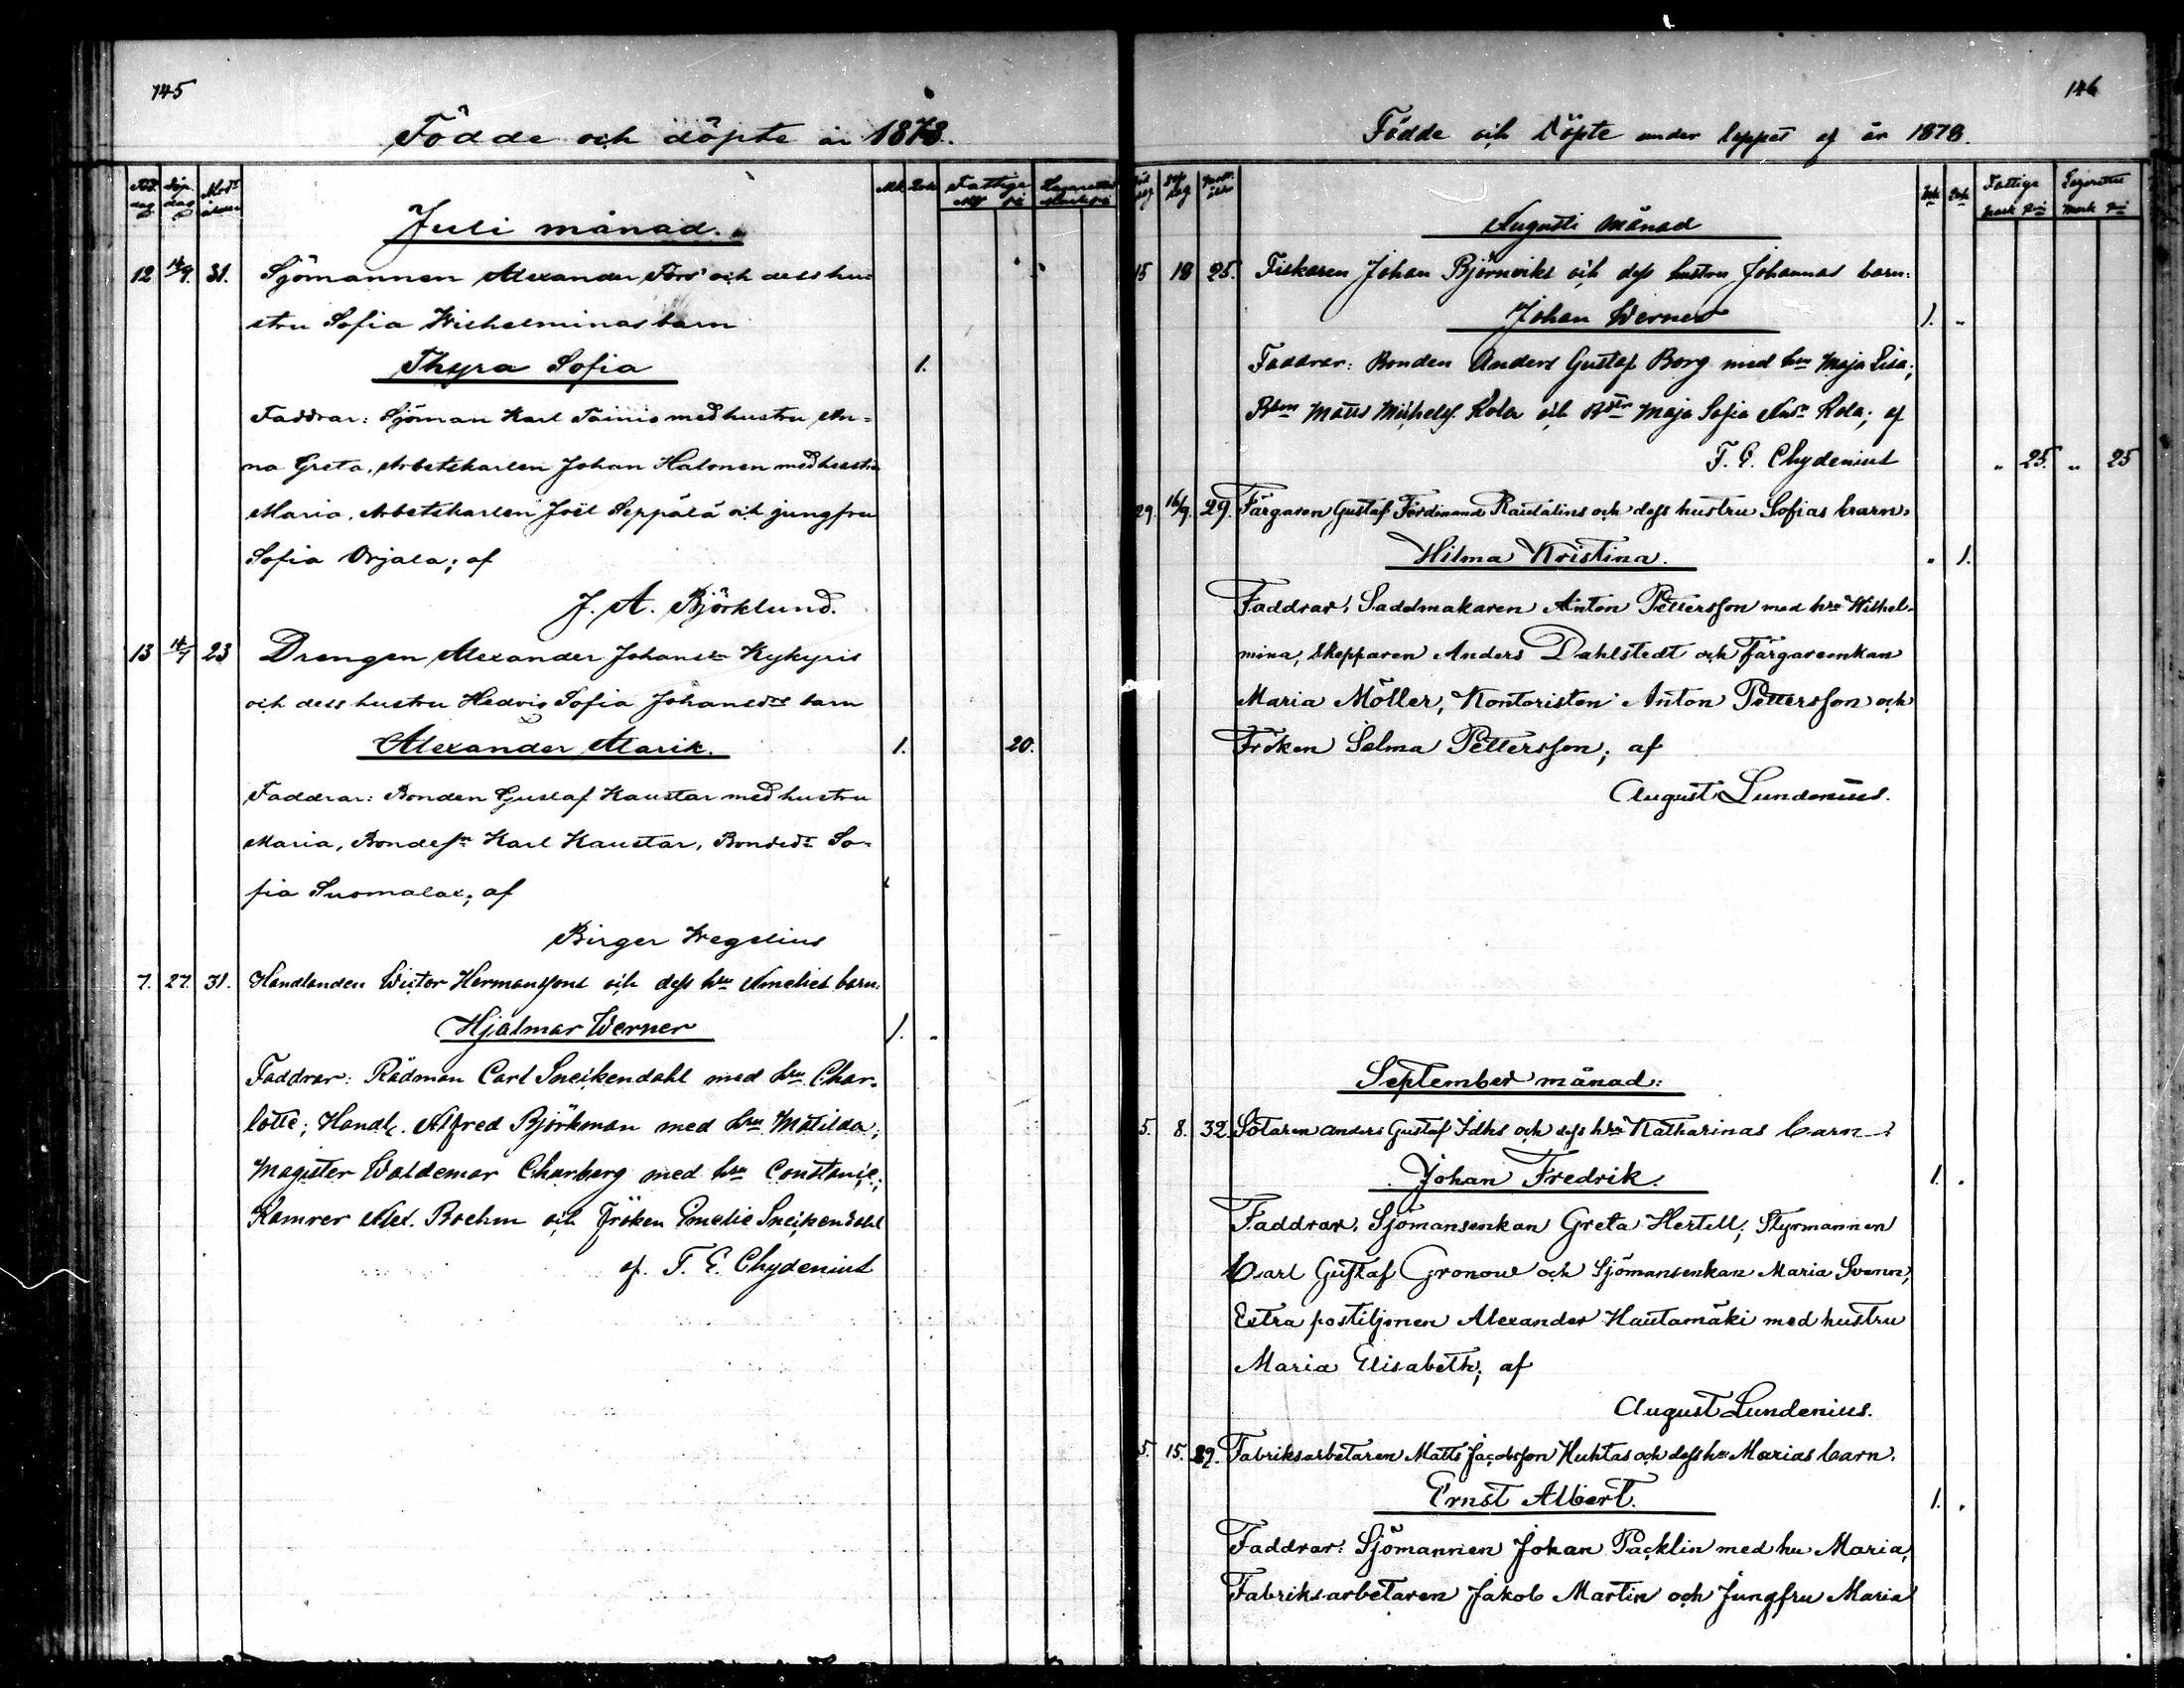 145
Födde och döpte år 1878.
Mk. Qvk. Fattige Lazarettet
Juli månad.
12 14/9. 31. Sjömannen Alexander Fors' och dess hu-
stru Sofia Wilhelminas barn
Thyra Sofia 1.
Faddrar: Sjöman Karl Tainio med hustru An-
na Greta, Arbetskarlen Johan Halonen med hustru
Maria, Arbetskarlen Joël Seppälä och jungfru
Sofia Orjala; af
J. A. Björklund.
13 14/7 23 Drengen Alexander Johanss. Kykyris
och dess hustru Hedvig Sofia Johansdrs barn
Alexander Alarik. 1. 20.
Faddrar: Bonden Gustaf Kaustar med hustru
Maria, Bondesn Karl Kaustar, Bondedr So-
fia Suomalax; af
Birger Wegelius
7. 27. 31. Handlanden Victor Hermanssons och dess hru Amelies barn:
Hjalmar Werner 1. "
Faddrar: Rådman Carl Sneikendahl med hru Char-
lotte; Handl. Alfred Björkman med hru Matilda;
Magister Waldemar Churberg med hru Constance;
Kamrer Alex. Boehm och Fröken Emelie Sneikendahl
af. F. E. Chydenius
146
Födde och Döpte under loppet af år 1878.
Fattige Lazarettet
mark pni mark pni
Augusti månad
15 18 25. Fiskaren Johan Björnviks och dess hustru Johannas barn:
Johan Werner 1. "
Faddrar: Bonden Anders Gustaf Borg med hru Maja Lisa;
Matts Michelss. Kola och Maja Sofia Kola; af
F. E. Chydenius " 25. " 25
29. 16/9. 29. Färgaren Gustaf Ferdinand Rautalins och dess hustru Sofias barn:
Hilma Kristina. " 1.
Faddrar: Sadelmakaren Anton Pettersson med hru Wilhel-
mina, Skepparen Anders Dahlstedt och färgareenkan
Maria Möller, Kontoristen Anton Pettersson och
Fröken Selma Pettersson; af
August Lundenius.
September månad:
5. 8. 32. Sotaren Anders Gustaf och dess hru Katharinas barn:
Johan Fredrik. 1. "
Faddrar: Sjömansenkan Greta Hertell; Styrmannen
Carl Gustaf Gronow och Sjömansenkan Maria Svenn;
Extra postiljonen Alexander Hautamäki med hustru
Maria Elisabeth; af
August Lundenius.
5. 15. 39. Fabriksarbetaren Matts Jacobsson Huhtas och dess hu Marias barn.
Ernst Albert. 1. "
Faddrar: Sjömannen Johan Packlin med hu Maria,
Fabriksarbetaren Jakob Martin och Jungfru Maria